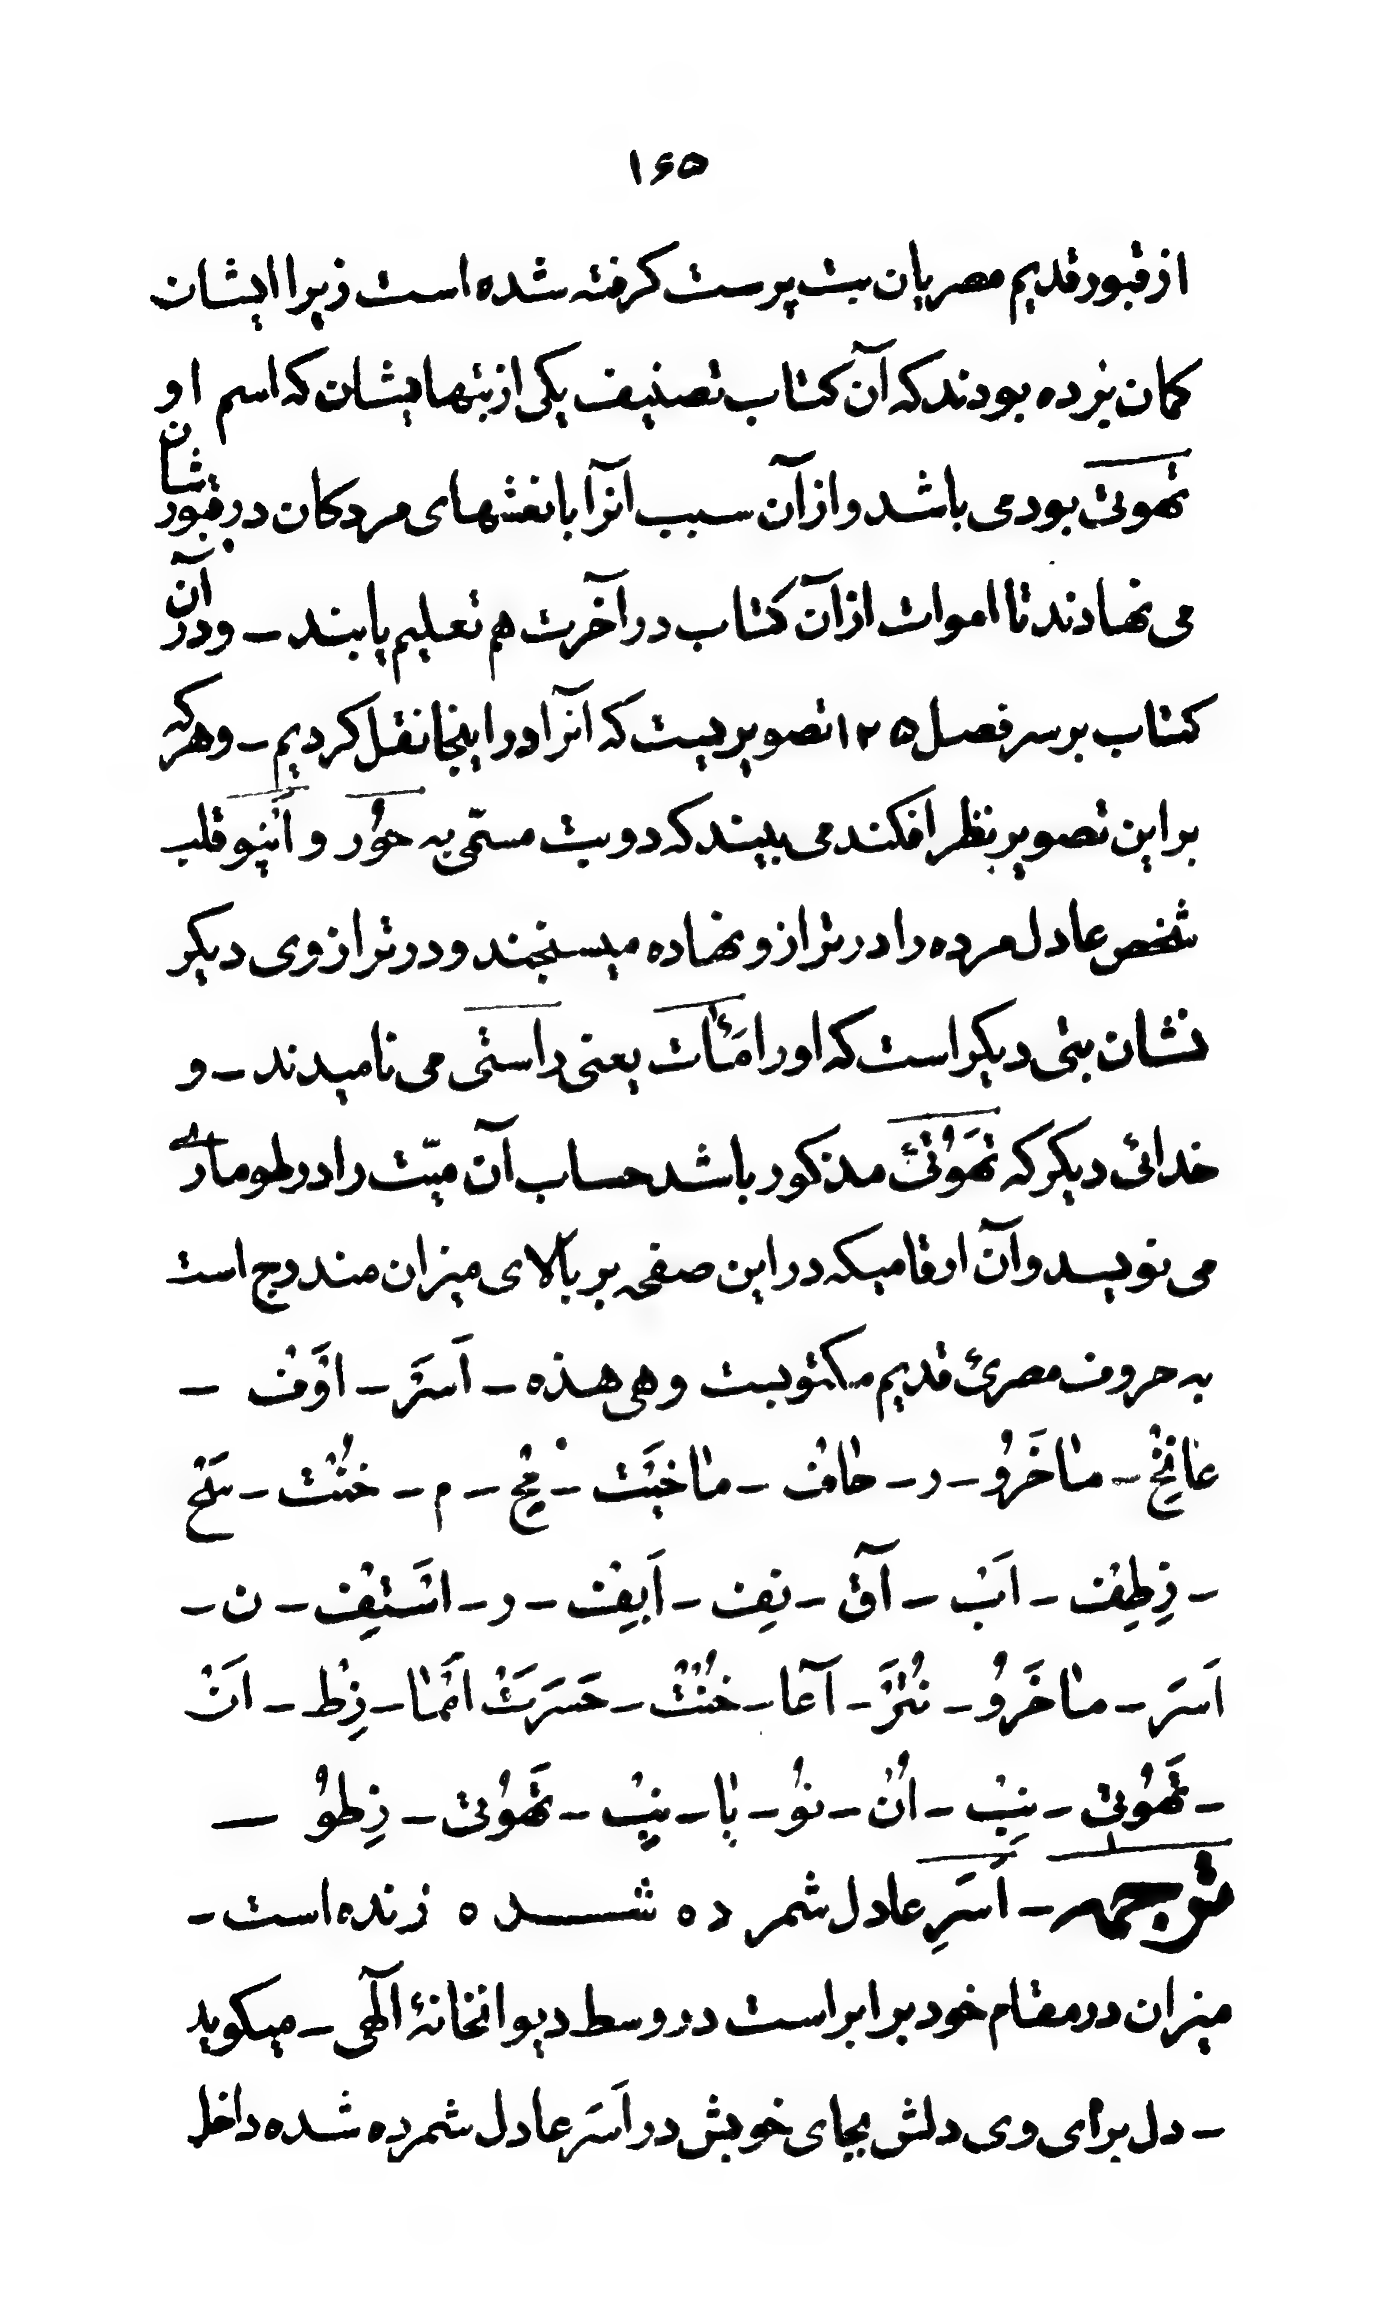 ۱۶۵
از قبور قدیم مصریان بت پرست کرفته شده است زیرا ایشان
کمان برده بودند که آن کتاب تصنیف یکی از بتهایشان که اسم او
تهوتی بود می باشد و از آن سبب آنرا با نعشهای مردکان در قبورشان
می نهادند تا اموات از آن کتاب در آخرت هم تعلیم یابند ـ و در آن
کتاب بر سر فصل ۱۲۵ تصویریست که آنرا در اینجا نقل کردیم ـ و هر که
بر این تصویر نظر افکند می بیند که دو بت مسمّی به حوُر و اَنپو قلب
شخص عادل مرده را در ترازو نهاده میسنجند و در ترازوی دیکر
نشان بتی دیکر است که او را مَئات یعنی راستی می نامیدند ـ و
خدائی دیکر که تهَوُتی مذکور باشد حساب آن میّت را در طوماری
می نویسد و آن ارقامیکه در این صفحه بر بالای میزان مندرج است
به حروف مصرئ قدیم مکتوبست و هی هذه ـ اَسَرَ ـ اوَف ـ
عانخ ـ ماخَروُ ـ ر ـ حاف ـ ماخَیَت ـ ـ م ـ خنُت ـ
ـ ذِطِف ـ اَب ـ آق ـ نِف ـ اَبِف ـ ر ـ اسَتِف ـ ن ـ
اَسَرَ ـ ماخَروُ ـ نُتَرَ ـ آعا ـ خُنُت ـ حَسَرَت اَمَا ـ ذِط ـ اَن
ـ تَهوُتی ـ نِب ـ اُن ـ نوُ ـ پا ـ نِب ـ تَهوُتی ـ ذِطوُ ـ
ترجمه ـ اَسَرِ عادل شمرده شده زنده است ـ
میزان در مقام خود برابر است در وسط دیوانخانهٔ الٓهی ـ میکوید
ـ دل برای وی دلش بجای خویش در اَسَر عادل شمرده شده داخل